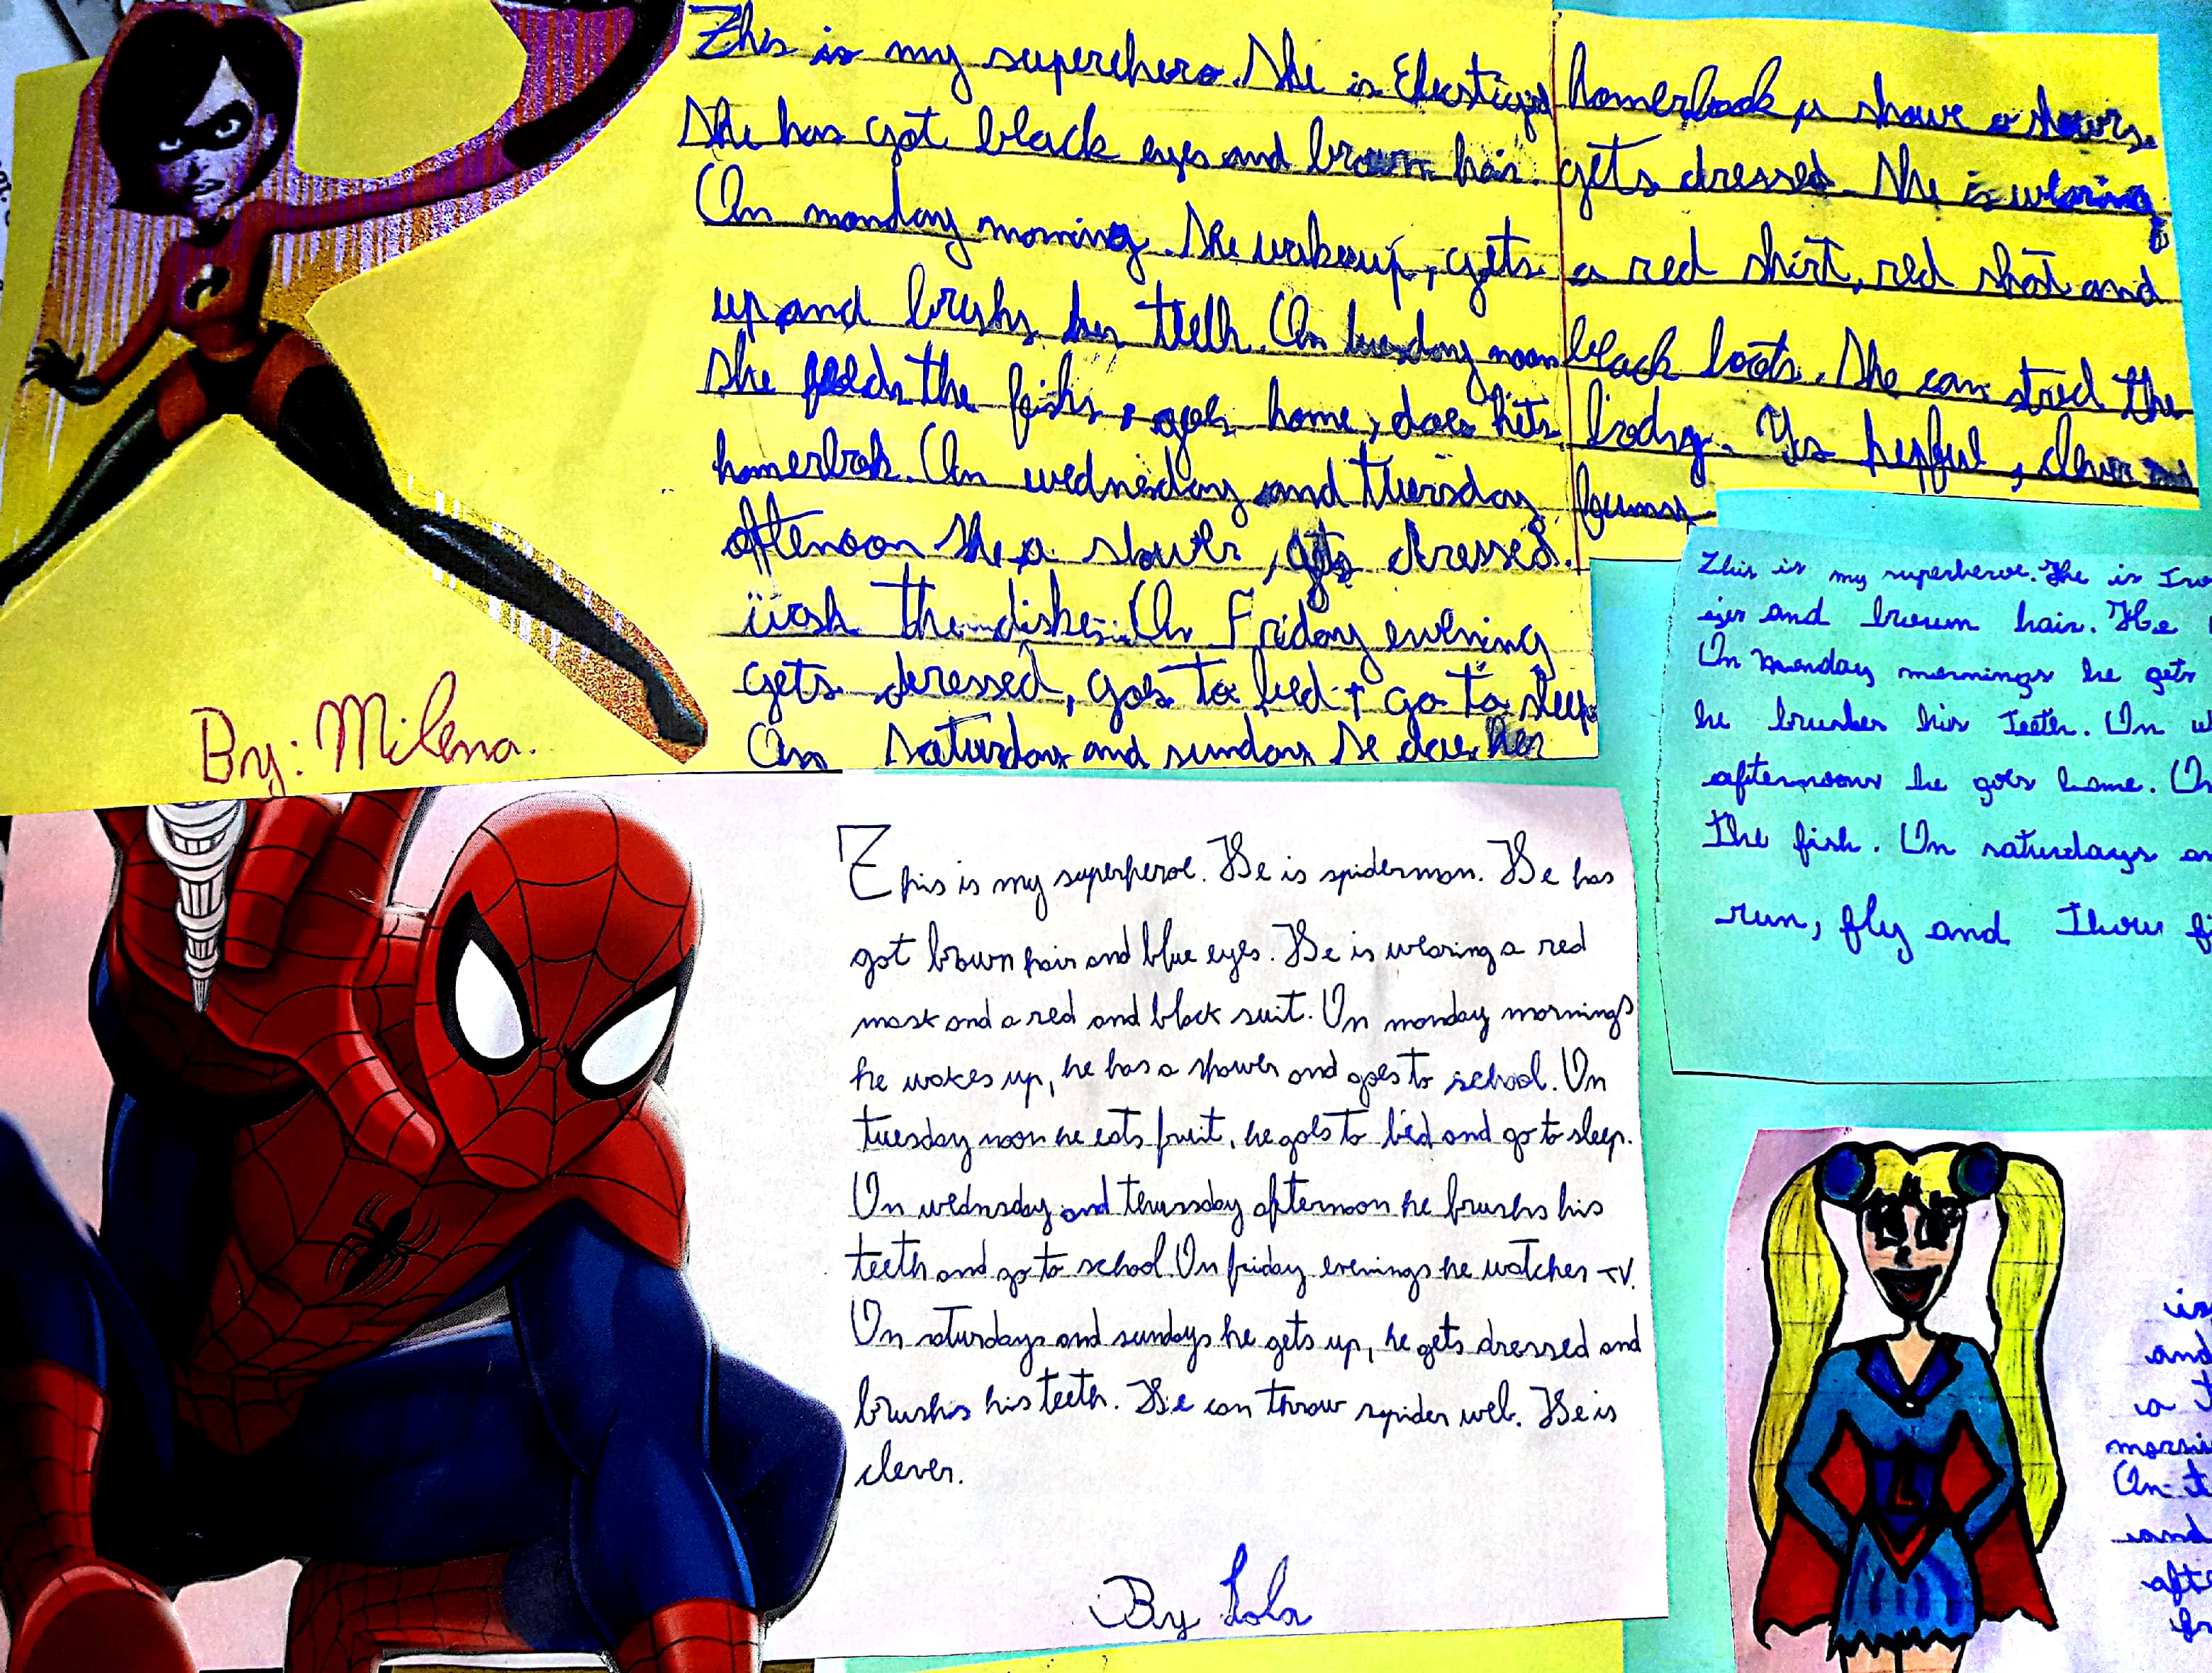 This is my superchero. She is Elasticgirl
She has got black eyes and brown hair.
On monday morning. She wakeup, gets
up and brushs her teeth. On tuesday noon
She feeds the fishs, goes home, does hits
homerlook. On wednesday and thursday
aftenoon She a shower, gets dressed.
wash the dishes. On Friday evening
gets dressed, goes to bed + go to sleep
On saturday and sunday se does her
homerlook, a shawe a
gets dressed. She is wearing
a red shirt, red shot and
black boots. She can stred the
body. Ys hepful, clever and
funny
By: Milena.
This is my superheroe. He is spiderman. He has
got brown hair and blue eyes. He is wearing a red
mask and a red and black suit. On monday mornings
he wakes up, he has a shower and goes to school. On
tuesday noon he eats fruit, he goes to bed and go to sleep.
On wednesday and thursday afternoon he brushs his
teeth and go to school. On friday evenings he watches TV.
On saturdays and sundays he gets up, he gets dressed and
brushs his teeth. He can throw spider web. He is
clever.
By Lola
This is my superheroe. He is Iro
ejes and brown hair. He
On monday mornings he gets
he brushes his teeth. On w
afternoons he goes home. On
the fish. On saturdays an
run, fly and throw fi
L
is
and
a t
morni
On t
and
afte
br